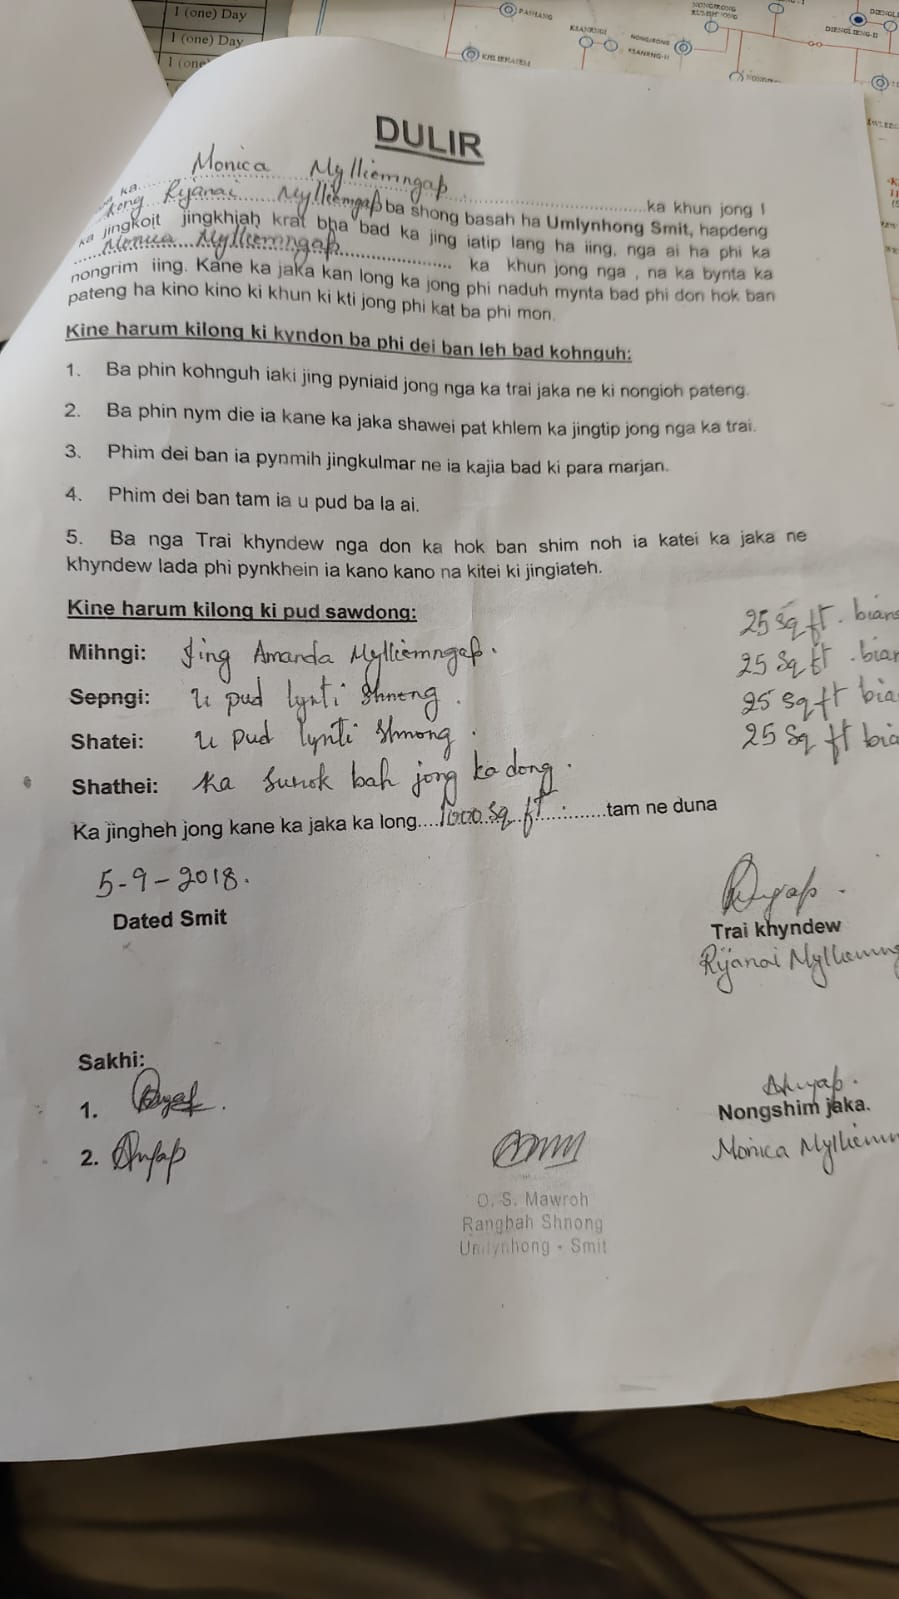 1 (one) Day
1 (one) Day
1 (one
PAHANG
KHLIEHATEM
KSANRNGI
NONGJRONG
KSANRNG-II
DIENGLIENG-II
DULIR
ka Monica Mylliemngap ka khun jong I
kong Rijanai Mylliemngap ba shong basah ha Umlynhong Smit, hapdeng
ka jingkoit jingkhiah krat bha bad ka jing iatip lang ha iing, nga ai ha phi ka
Monica Mylliemngap ka khun jong nga , na ka bynta ka
nongrim iing. Kane ka jaka kan long ka jong phi naduh mynta bad phi don hok ban
pateng ha kino kino ki khun ki kti jong phi kat ba phi mon.
Kine harum kilong ki kyndon ba phi dei ban leh bad kohnguh:
1. Ba phin kohnguh iaki jing pyniaid jong nga ka trai jaka ne ki nongioh pateng.
2. Ba phin nym die ia kane ka jaka shawei pat khlem ka jingtip jong nga ka trai.
3. Phim dei ban ia pynmih jingkulmar ne ia kajia bad ki para marjan.
4. Phim dei ban tam ia u pud ba la ai.
5. Ba nga Trai khyndew nga don ka hok ban shim noh ia katei ka jaka ne
khyndew lada phi pynkhein ia kano kano na kitei ki jingiateh.
Kine harum kilong ki pud sawdong:
Mihngi: Jing Amanda Mylliemngap. 25 Sq ft. bian
Sepngi: U pud lynti Shnong. 25 Sq ft. bian
Shatei: U pud lynti Shnong. 25 Sq ft bia
Shathei: Ka Surok bah jong ka dong. 25 Sq ft bia
Ka jingheh jong kane ka jaka ka long....1000 Sq. ft.........tam ne duna
5-9-2018.
Dated Smit
Trai khyndew
Rijanai Mylliemng
Sakhi:
1.
2.
Nongshim jaka.
Monica Mylliem
O. S. Mawroh
Rangbah Shnong
Umlynhong - Smit